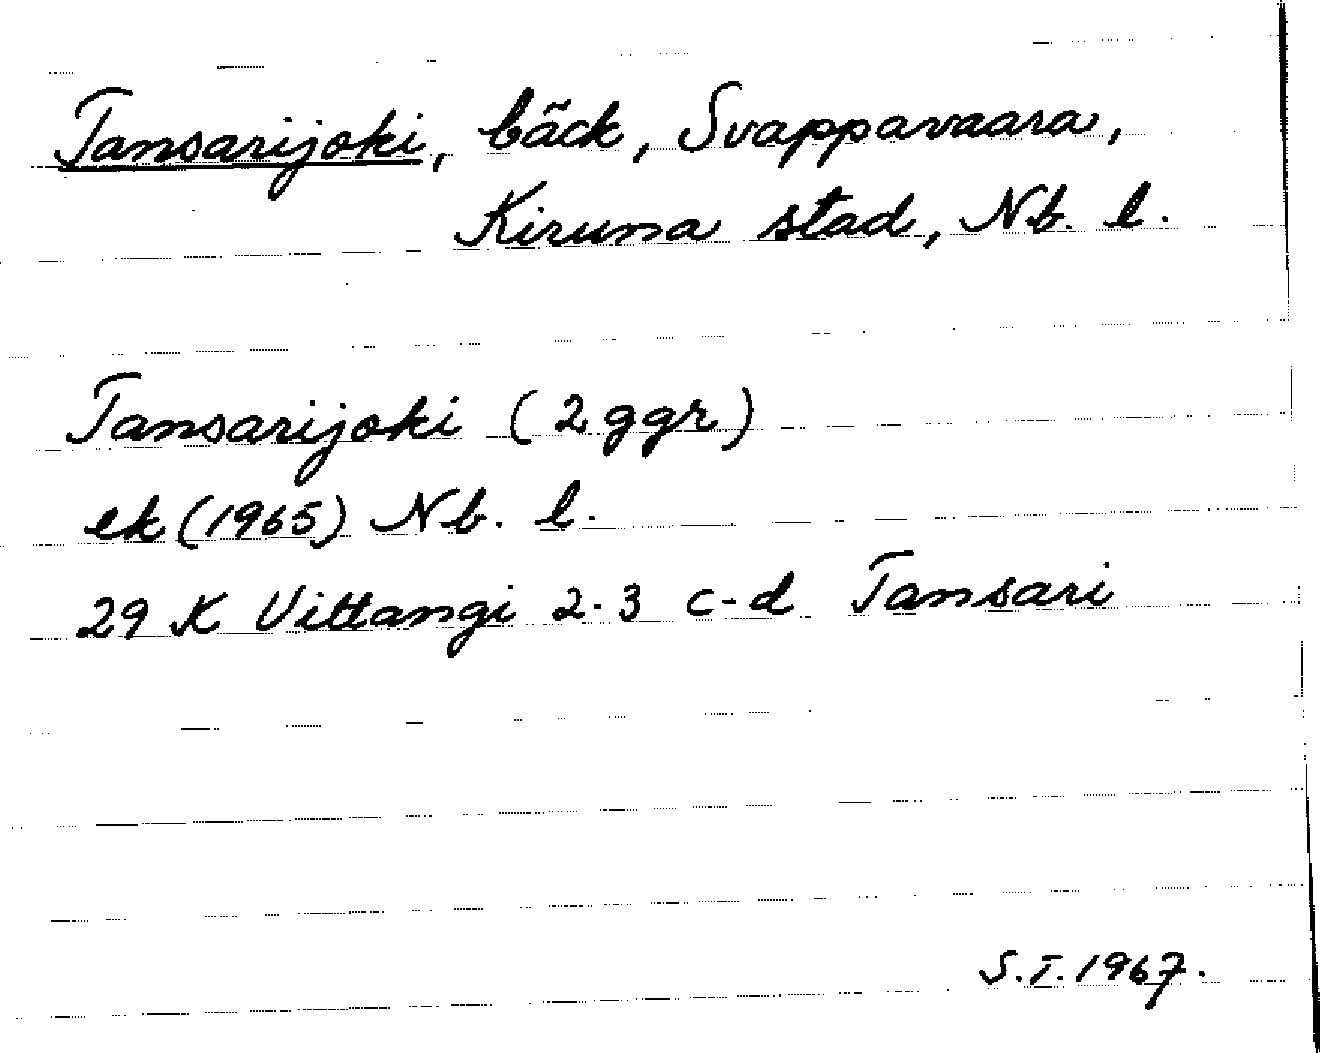 Tansarijoki, bäck, Svappavaara,
Kiruna stad, Nb. l.
Tansarijoki (2 ggr)
ek (1965) Nb. l.
29 K Vittangi 2-3 c-d Tansari
S.T. 1967.